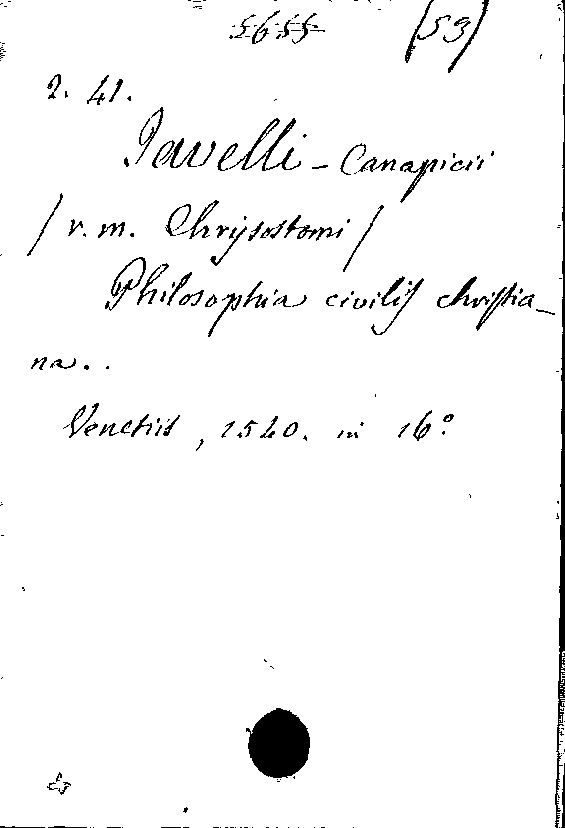 5655 (53)
2. 41.
Javelli - Canapicii
/ r. m. Chrysostomi /
Philosophia civilis christia-
na..
Venetiis, 1540. in 16°